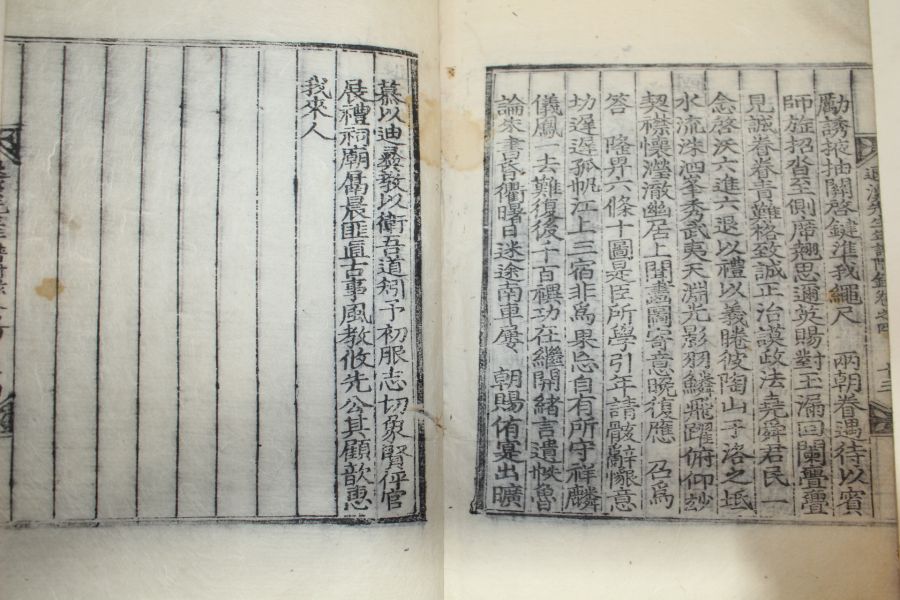 勵誘掖抽關啓鍵準我繩尺 兩朝眷遇待以賓
師旌招沓至側席翹思邇英賜對玉漏回闌亹亹
見誠眷眷責難格致誠正治謨政法堯舜君民一
念啓沃六進六退以禮以義睠彼陶山于洛之坻
水流洙泗峯秀武夷天淵光影羽鱗飛躍俯仰玅
契襟懷瀅澈幽居上聞畫圖寄意晩復應 召爲
答 隆畀六條十圖是臣所學引年請骸辭懇意
切遅遅孤帆江上三宿非爲果忘自有所守祥麟
儀鳳一去難復後千百禩功在繼開緖言遺帙魯
論朱書昏衢曙日迷途南車屢 朝賜侑宴出曠
慕以迪彛敎以衛吾道矧予初服志切象賢伻官
展禮祠廟咼晨匪直古事風教攸先公其顧歆惠
我來人